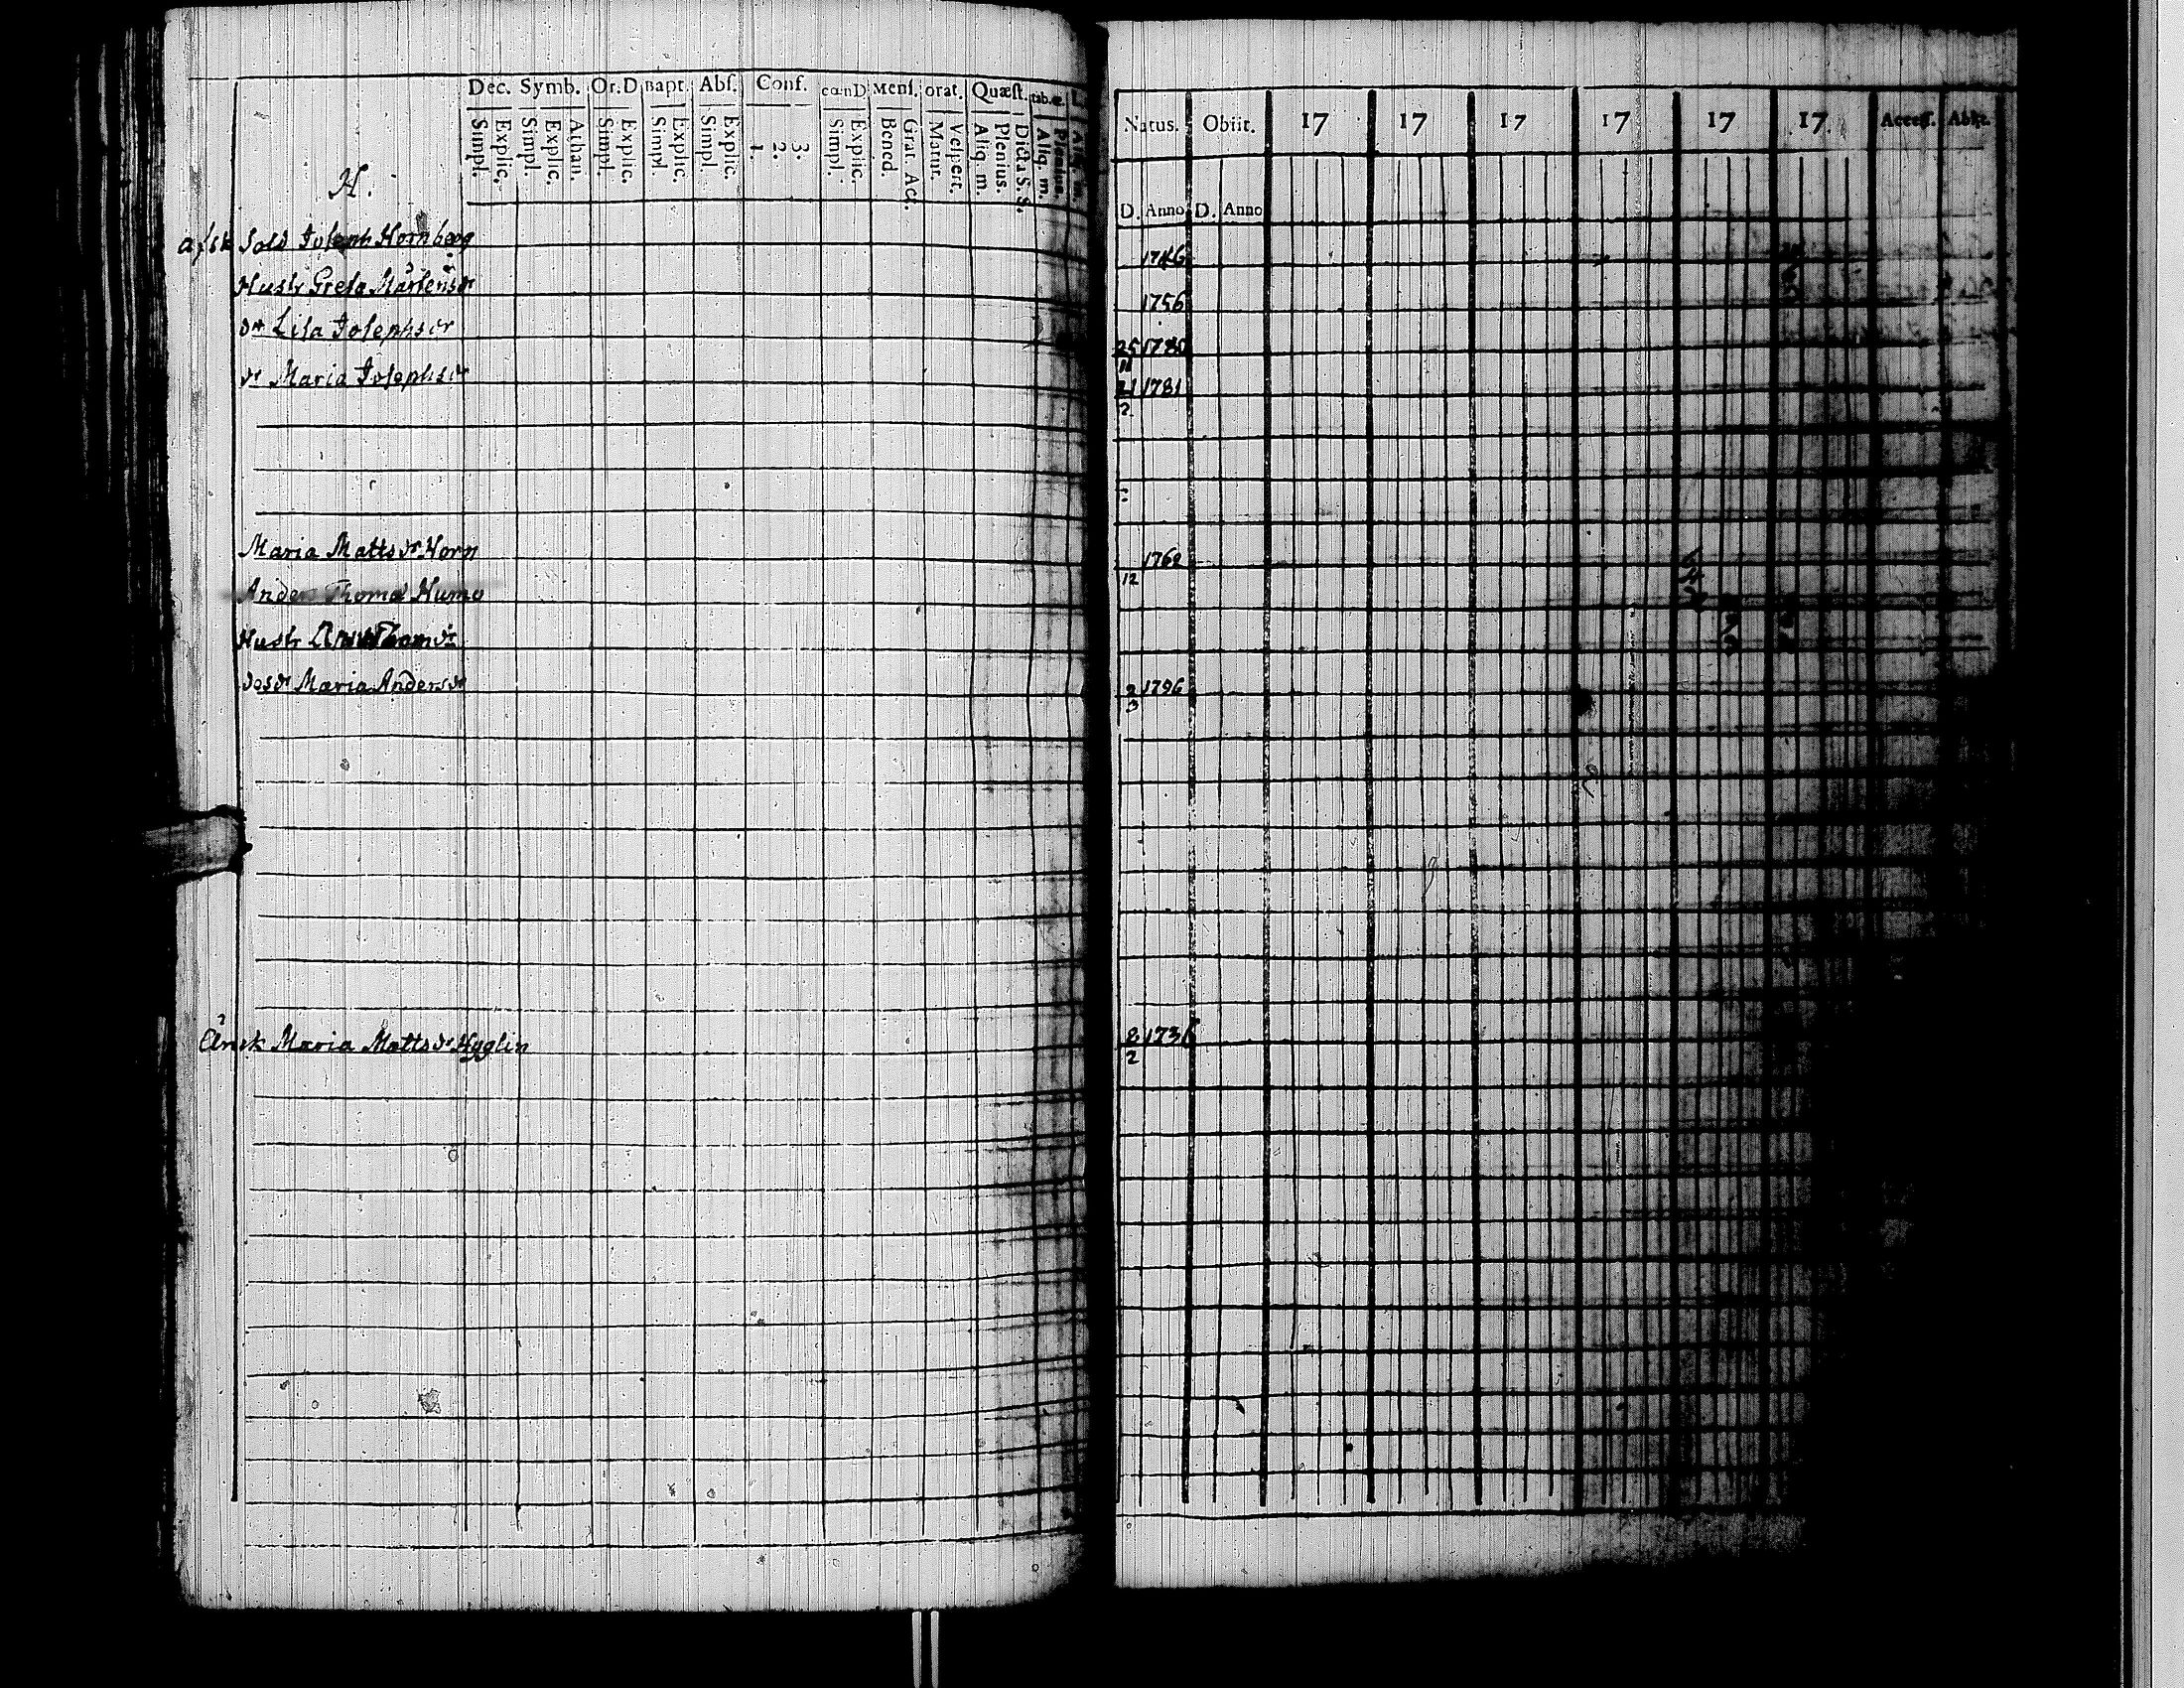 Dec. Symb. Or.D Bapt. Abs. Conf. cœnD Mens. orat. Quæst. tab.œ.
Simpl. Explic. Simpl. Explic. Athan. Simpl. Explic. Simpl. Explic. Simpl. Explic. 1. 2. 3. Simpl. Explic. Bened. Grat. Act. Matut. Vespert. Aliq. m. Plenius. Dicta S. S. Aliq. m. Plenius. Aliq. m.
Natus. Obiit. 17 17 17 17 17 17. Access. Abit.
D. Anno D. Anno
H.
afsk Sold Joseph Hornberg 1746
Hustr Greta Mårtensdr 1756
dr Lisa Josephsdr 25 11 1780
dr Maria Josephsdr 21 2 1781
Maria Mattsdr Horn 12 1762
Anders Thomas Humo
Hustr Thomdr
desdr Maria Andersdr 2 3 1796
Änek Maria Mattsdr Hyglin 2 2 1736